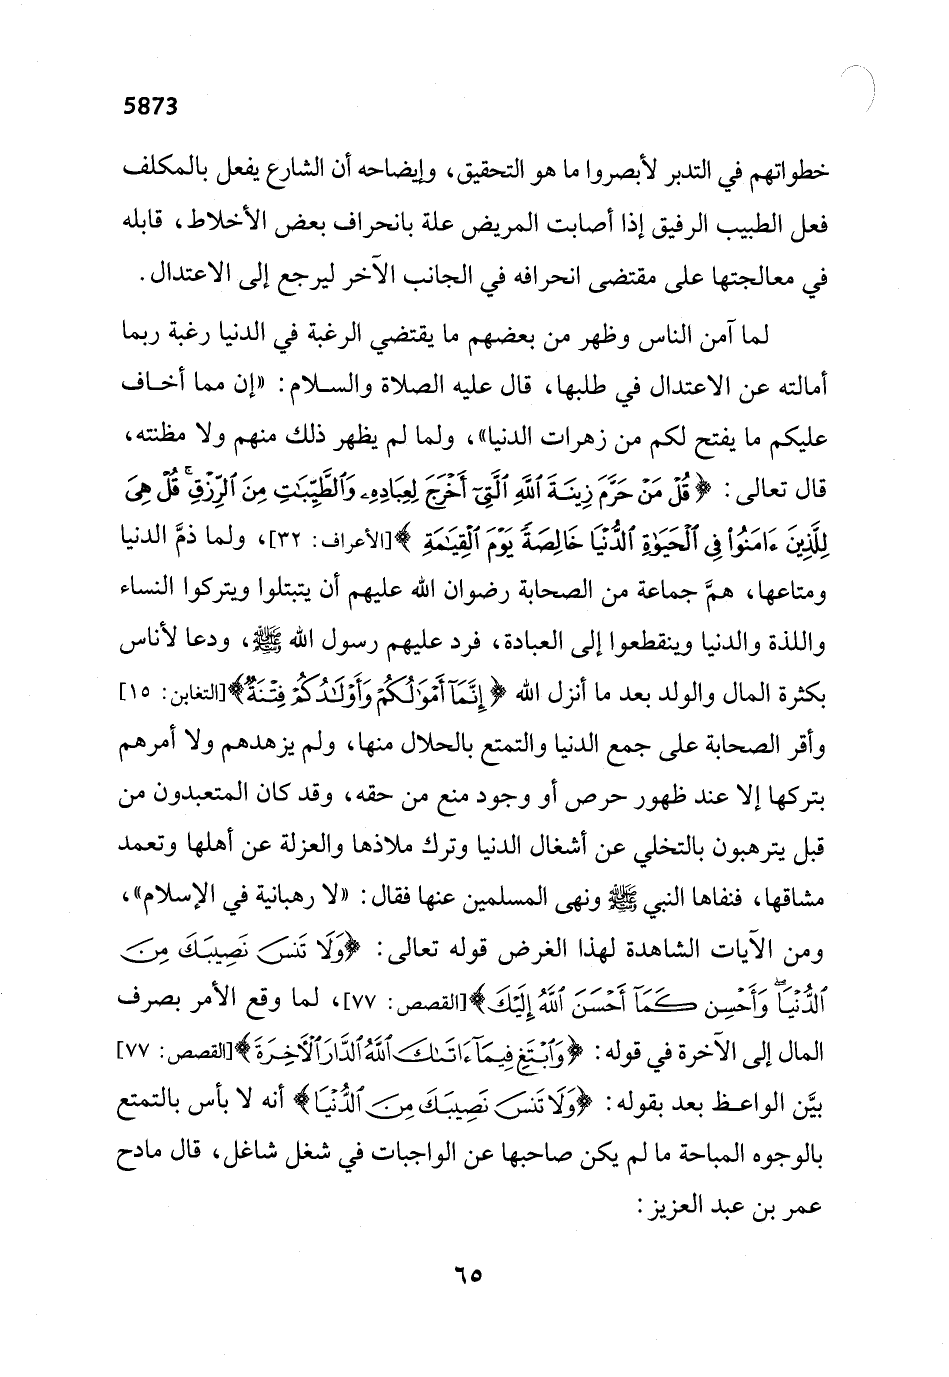 5873
خطواتهم في التدبر لأبصروا ما هو التحقيق، وإيضاحه أن الشارع يفعل بالمكلف
فعل الطبيب الرفيق إذا أصابت المريض علة بانحراف بعض الأخلاط، قابله
في معالجتها على مقتضى انحرافه في الجانب الآخر ليرجع إلى الاعتدال.
لما آمن الناس وظهر من بعضهم ما يقتضي الرغبة في الدنيا رغبة ربما
أمالته عن الاعتدال في طلبها، قال عليه الصلاة والسلام: «إن مما أخاف
عليكم ما يفتح لكم من زهرات الدنيا»، ولما لم يظهر ذلك منهم ولا مظنته،
قال تعالى: ﴿قُلْ مَنْ حَرَّمَ زِينَةَ ٱللَّهِ ٱلَّتِىٓ أَخْرَجَ لِعِبَادِهِۦ وَٱلطَّيِّبَٰتِ مِنَ ٱلرِّزْقِ ۚ قُلْ هِىَ
لِلَّذِينَ ءَامَنُوا۟ فِى ٱلْحَيَوٰةِ ٱلدُّنْيَا خَالِصَةً يَوْمَ ٱلْقِيَٰمَةِ﴾ [الأعراف: ٣٢]، ولما ذمَّ الدنيا
ومتاعها، همَّ جماعة من الصحابة رضوان الله عليهم أن يتبتلوا ويتركوا النساء
واللذة والدنيا وينقطعوا إلى العبادة، فرد عليهم رسول الله ﷺ، ودعا لأناس
بكثرة المال والولد بعد ما أنزل الله ﴿إِنَّمَآ أَمْوَٰلُكُمْ وَأَوْلَٰدُكُمْ فِتْنَةٌ﴾ [التغابن: ١٥]
وأقر الصحابة على جمع الدنيا والتمتع بالحلال منها، ولم يزهدهم ولا أمرهم
بتركها إلا عند ظهور حرص أو وجود منع من حقه، وقد كان المتعبدون من
قبل يترهبون بالتخلي عن أشغال الدنيا وترك ملاذها والعزلة عن أهلها وتعمد
مشاقها، فنفاها النبي ﷺ ونهى المسلمين عنها فقال: «لا رهبانية في الإسلام»،
ومن الآيات الشاهدة لهذا الغرض قوله تعالى: ﴿وَلَا تَنسَ نَصِيبَكَ مِنَ
ٱلدُّنْيَا ۖ وَأَحْسِن كَمَآ أَحْسَنَ ٱللَّهُ إِلَيْكَ﴾ [القصص: ٧٧]، لما وقع الأمر بصرف
المال إلى الآخرة في قوله: ﴿وَٱبْتَغِ فِيمَآ ءَاتَىٰكَ ٱللَّهُ ٱلدَّارَ ٱلْءَاخِرَةَ﴾ [القصص: ٧٧]
بيَّن الواعظ بعد بقوله: ﴿وَلَا تَنسَ نَصِيبَكَ مِنَ ٱلدُّنْيَا﴾ أنه لا بأس بالتمتع
بالوجوه المباحة ما لم يكن صاحبها عن الواجبات في شغل شاغل، قال مادح
عمر بن عبد العزيز:
٦٥